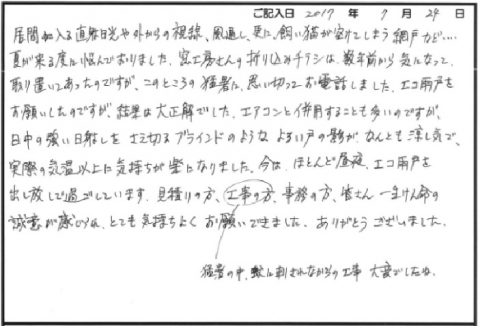 ご記入日 2017 年 7 月 29 日
居間に入る直射日光や外からの視線、風通し、更に、飼い猫が空けてしまう網戸など…。
夏が来る度に悩んでおりました。窓工房さんの折り込みチラシは、数年前から気になって、
取り置いてあったのですが、このところの猛暑に、思い切ってお電話しました。エコ雨戸を
お願いしたのですが、結果は大正解でした。エアコンと併用することも多いのですが、
日中の強い日射しを遮るブラインドのような よろい戸の影が、なんとも涼し気で、
実際の気温以上に気持ちが楽になりました。今は、ほとんど昼夜、エコ雨戸を
出し放しで過ごしています。見積りの方、工事の方、事務の方、皆さん一生けん命の
誠意が感じられ、とても気持ちよくお願いできました。ありがとうございました。
猛暑の中、蚊に刺されながらの工事 大変でしたね。